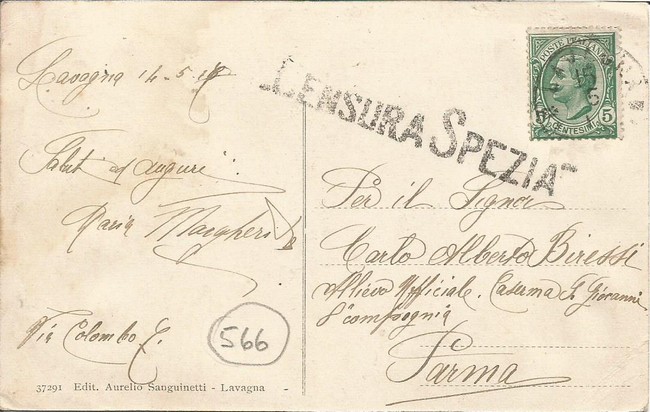 Lavagna 14-5-
Saluti ed auguri
Maria Margherita
Via Colombo 7.
566
37291 Edit. Aurelio Sanguinetti - Lavagna -
CENSURA SPEZIA
POSTE ITALIANE
5 CENTESIMI 5
Per il Signor
Carlo Alberto Biressi
Allievo Ufficiale. Caserma S. Giovanni
8ª compagnia
Parma